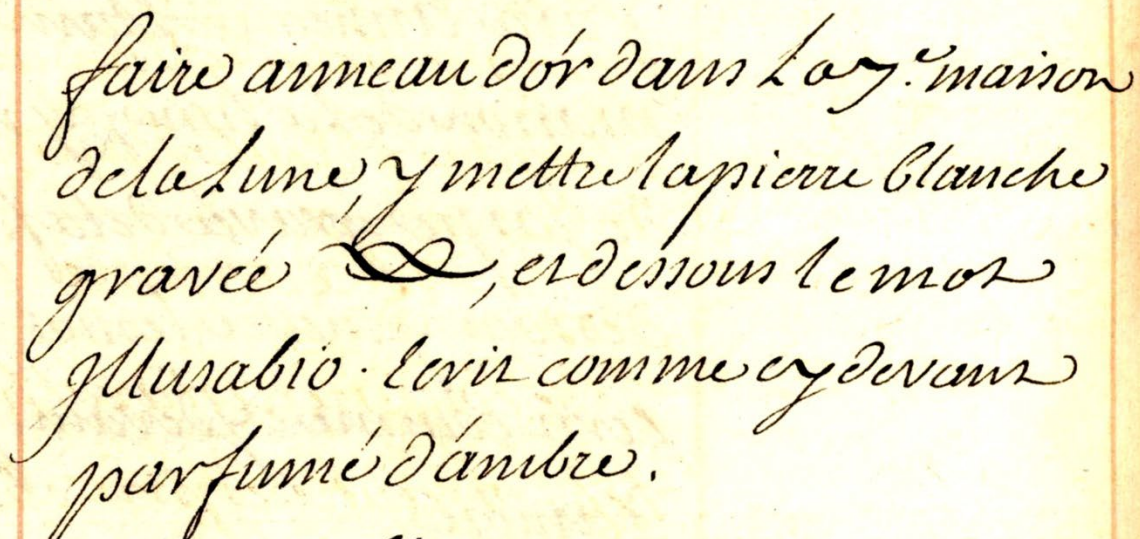 faire anneau d'or dans La 7.e maison
de la Lune, y mettre la pierre blanche
gravéé , et dessous le mot
Jllusabio. Ecrit comme cy devant
parfumé d'ambre.